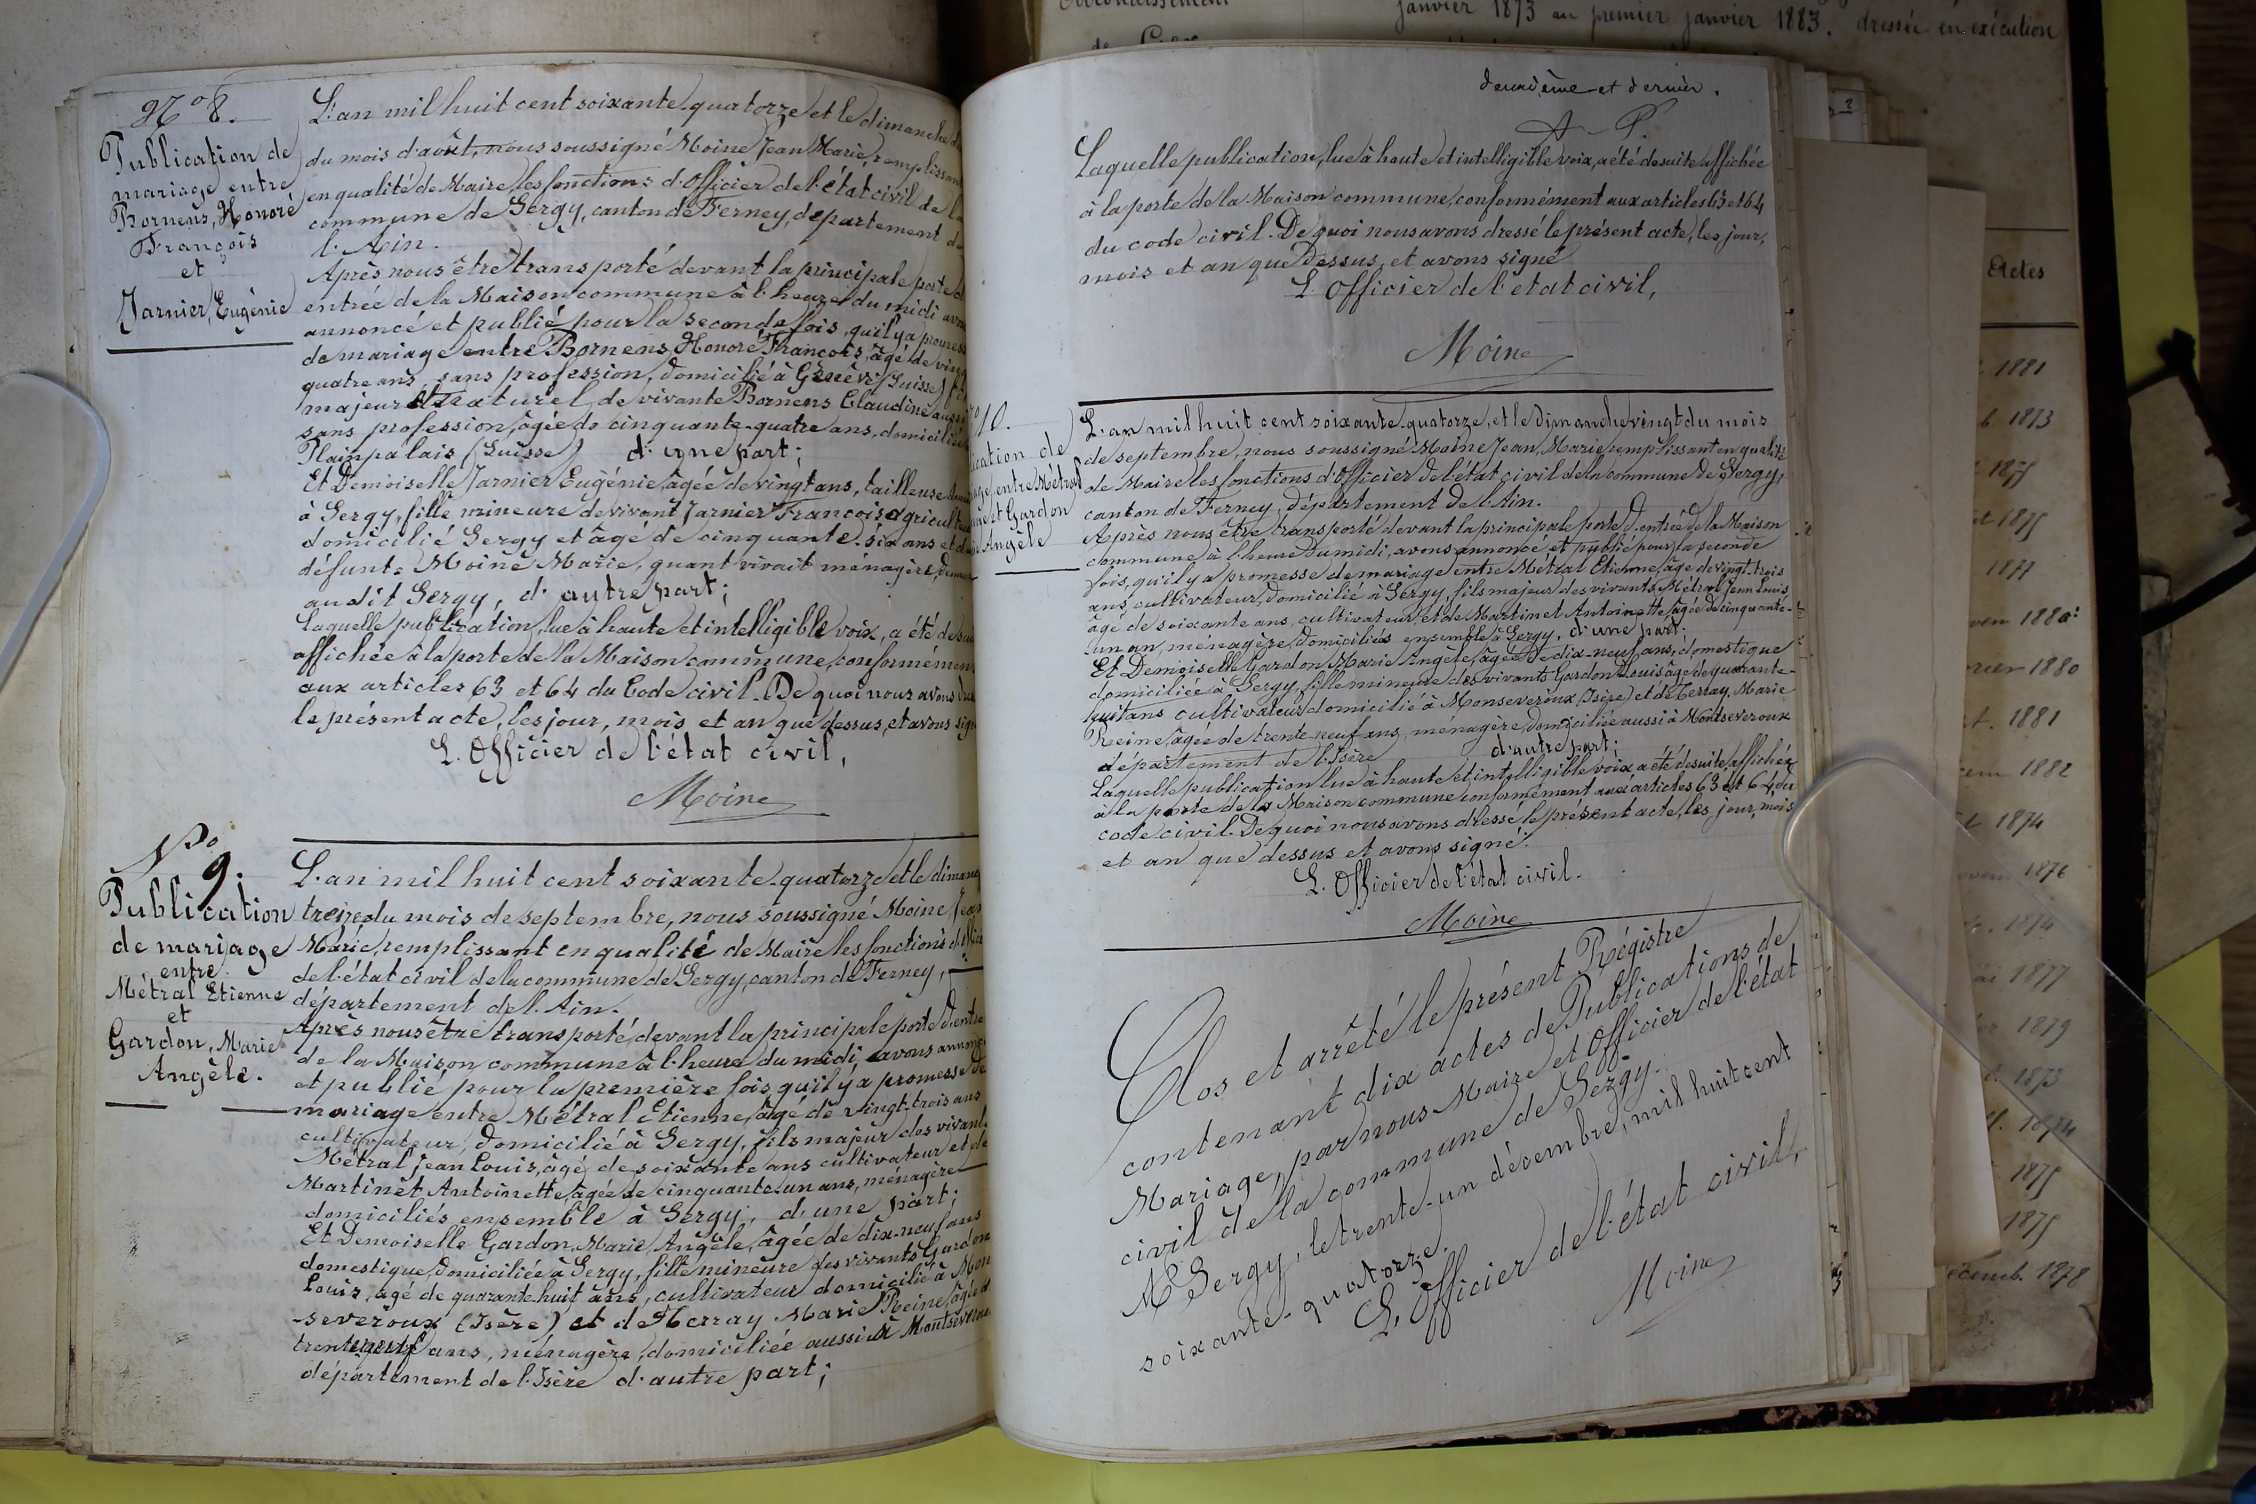 No 8.
Publication de
mariage entre
Bornens, Honoré
François
et
Jarnier, Eugénie
L'an mil huit cent soixante-quatorze et le dimanche
du mois d'août, nous soussigné Moine Jean Marie, remplissant
en qualité de Maire les fonctions d'Officier de l'état civil de la
commune de Sergy, canton de Ferney, département de
l'Ain.
Après nous être transporté devant la principale porte d
entrée de la Maison commune à l'heure du midi avons
annoncé et publié pour la seconde fois, qu'il y a promesse
de mariage entre Bornens Honoré François, âgé de vingt
quatre ans, sans profession, domicilié à Genève (Suisse) fils
majeur et naturel de vivante Bornens Claudine aussi
sans profession, âgée de cinquante-quatre ans, domiciliée
Plainpalais (Suisse) d'une part;
Et Demoiselle Jarnier Eugénie, âgée de vingt ans, tailleuse
à Sergy, fille mineure de vivant Jarnier François, agriculteur
domicilié Sergy et âgé de cinquante-six ans et de
défunte Moine Marie, quant vivait ménagère,
audit Sergy, d'autre part;
Laquelle publication, lue à haute et intelligible voix, a été de suite
affichée à la porte de la Maison commune, conformément
aux articles 63 et 64 du Code civil. De quoi nous avons dressé
le présent acte, les jour, mois et an que dessus, et avons signé
L'Officier de l'état civil,
Moine
No 9.
Publication
de mariage
entre
Métral Etienne
et
Gardon, Marie
Angèle.
L'an mil huit cent soixante-quatorze et le dimanche
treize du mois de septembre, nous soussigné Moine Jean
Marie, remplissant en qualité de Maire les fonctions d'officier
de l'état civil de la commune de Sergy, canton de Ferney,
département de l'Ain.
Après nous être transporté devant la principale porte d'entrée
de la Maison commune à l'heure du midi, avons annoncé
et publié pour la première fois, qu'il y a promesse de
mariage entre Métral Etienne, âgé de vingt-trois ans
cultivateur, domicilié à Sergy, fils majeur des vivants
Métral Jean Louis, âgé de soixante ans cultivateur et de
Martinet Antoinette, âgée de cinquante-un ans, ménagère
domiciliés ensemble à Sergy, d'une part;
Et Demoiselle Gardon, Marie Angèle, âgée de dix-neuf ans
domestique, domiciliée à Sergy, fille mineure des vivants Gardon
Louis, âgé de quarante-huit ans, cultivateur domicilié à Mon
-severoux (Isère) et de Terray Marie Reine, âgée de
trente-neuf ans, ménagère, domiciliée aussi à Montseveroux
département de l'Isère d'autre part;
deuxième et dernier.
Laquelle publication, lue à haute et intelligible voix, a été de suite affichée
à la porte de la Maison commune, conformément aux articles 63 et 64
du code civil. De quoi nous avons dressé le présent acte, les jour,
mois et an que dessus, et avons signé
L'Officier de l'état civil,
Moine
10.
ication de
iage entre Métral
et Gardon
Angèle
L'an mil huit cent soixante-quatorze, et le dimanche vingt du mois
de septembre, nous soussigné Moine Jean, Marie remplissant en qualité
de Maire les fonctions d'Officier de l'état civil de la commune de Sergy,
canton de Ferney, département de l'Ain.
Après nous être transporté devant la principale porte d'entrée de la Maison
commune à l'heure du midi, avons annoncé et publié pour la seconde
fois, qu'il y a promesse de mariage entre Métral Etienne, âgé de vingt-trois
ans, cultivateur, domicilié à Sergy, fils majeur des vivants Métral Jean Louis
âgé de soixante ans, cultivateur et de Martinet Antoinette, âgée de cinquante-
un an, ménagère, domiciliés ensemble à Sergy, d'une part.
Et Demoiselle Gardon Marie Angèle, âgée de dix-neuf ans, domestique
domiciliée à Sergy, fille mineure des vivants Gardon Louis âgé de quarante-
huit ans cultivateur domicilié à Monseveroux (Isère) et de Terray, Marie
Reine, âgée de trente-neuf ans, ménagère, domiciliée aussi à Montseveroux
département de l'Isère d'autre part;
Laquelle publication lue à haute et intelligible voix a été de suite, affichée
à la porte de la Maison commune conformément aux articles 63 et 64 du
code civil. De quoi nous avons dressé le présent acte, les jour, mois
et an que dessus et avons signé.
L'Officier de l'état civil.
Moine
Clos et arrêté le présent Régistre
contenant dix actes de Publications de
Mariage, par nous Maire et Officier de l'état
civil de la commune de Sergy.
A Sergy, le trente-un décembre, mil huit cent
soixante-quatorze.
L'Officier de l'état civil,
Moine
janvier 1873 au premier janvier 1883. dressée en exécution
Actes
1881
1873
1875
1875
1877
1880
1880
1881
1882
1874
1876
1874
1877
1879
1873
1874
1875
1875
1878